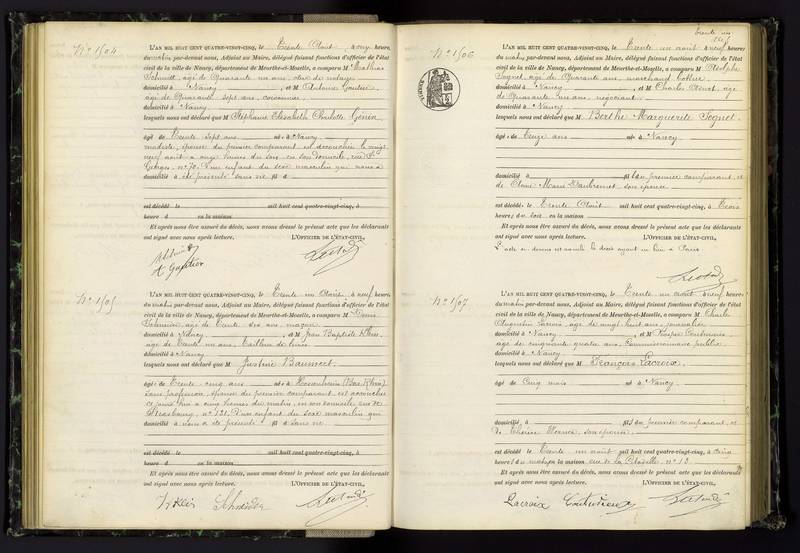 N° 1504
L'AN MIL HUIT CENT QUATRE-VINGT-CINQ, le Trente Août, à onze heures
du matin, par-devant nous, Adjoint au Maire, délégué faisant fonctions d'officier de l'état
civil de la ville de Nancy, département de Meurthe-et-Moselle, a comparu M Mathias
Schmitt, âgé de Quarante un ans,
domicilié à Nancy, et M Antoine Gautier,
âgé de Quarante sept ans,
domicilié à Nancy
lesquels nous ont déclaré que M Stéphanie Elisabeth Charlotte Génin
âgé de Trente sept ans né à Nancy
modiste, épouse du premier comparant est accouchée le vingt
neuf août à onze heures du soir en son domicile, rue St
n° 70. D'un enfant du sexe masculin qui nous a
domicilié à été présenté sans vie fil d
est décédé le mil huit cent quatre-vingt-cinq, à
heure d en la maison
Et après nous être assuré du décès, nous avons dressé le présent acte que les déclarants
ont signé avec nous après lecture. L'OFFICIER DE L'ÉTAT-CIVIL,
A Gautier
N° 1505
L'AN MIL HUIT CENT QUATRE-VINGT-CINQ, le Trente un Août, à neuf heures
du matin, par-devant nous, Adjoint au Maire, délégué faisant fonctions d'officier de l'état
civil de la ville de Nancy, département de Meurthe-et-Moselle, a comparu M
âgé de Trente ans, maçon
domicilié à Nancy, et M Jean Baptiste Klein,
âgé de Trente un ans, Tailleur de
domicilié à Nancy
lesquels nous ont déclaré que M Justine Baumert
âgé de Trente cinq ans né à (Bas Rhin)
sans profession, épouse du premier comparant est accouchée
ce jourd'hui à cinq heures du matin, en son domicile rue de
Strasbourg, n° 121. D'un enfant du sexe masculin qui
domicilié à nous a été présenté fil d sans vie
est décédé le mil huit cent quatre-vingt-cinq, à
heure d en la maison
Et après nous être assuré du décès, nous avons dressé le présent acte que les déclarants
ont signé avec nous après lecture. L'OFFICIER DE L'ÉTAT-CIVIL,
Klein Schneider
Trente un
N° 1506
L'AN MIL HUIT CENT QUATRE-VINGT-CINQ, le Trente un août à neuf heures
du matin, par-devant nous, Adjoint au Maire, délégué faisant fonctions d'officier de l'état
civil de la ville de Nancy, département de Meurthe-et-Moselle, a comparu M Adolphe
Sognet, âgé de Quarante ans, marchand
domicilié à Nancy, et M Charles, âgé
de Quarante un ans, négociant
domicilié à Nancy
lesquels nous ont déclaré que M Berthe Marguerite Sognet
âgé e de ans né à Nancy
domicilié à fil le du premier comparant, et
de Claire Marie son épouse
est décédé e le Trente Août mil huit cent quatre-vingt-cinq, à Trois
heures du soir en la maison
Et après nous être assuré du décès, nous avons dressé le présent acte que les déclarants
ont signé avec nous après lecture. L'OFFICIER DE L'ÉTAT-CIVIL,
L'acte ci-dessus est annulé le décès ayant eu lieu à Paris
N° 1507
L'AN MIL HUIT CENT QUATRE-VINGT-CINQ, le Trente un août à neuf heures
du matin, par-devant nous, Adjoint au Maire, délégué faisant fonctions d'officier de l'état
civil de la ville de Nancy, département de Meurthe-et-Moselle, a comparu M Charles
Augustin Lacroix, âgé de vingt huit ans, journalier
domicilié à Nancy, et M
âgé de cinquante quatre ans, Commissionnaire public
domicilié à Nancy
lesquels nous ont déclaré que M François Lacroix
âgé de Cinq mois né à Nancy
domicilié à fil s du premier comparant, et
de Thérèse son épouse
est décédé le Trente un août mil huit cent quatre-vingt-cinq, à cinq
heures du matin en la maison rue de la Citadelle, n° 13
Et après nous être assuré du décès, nous avons dressé le présent acte que les déclarants
ont signé avec nous après lecture. L'OFFICIER DE L'ÉTAT-CIVIL,
Lacroix